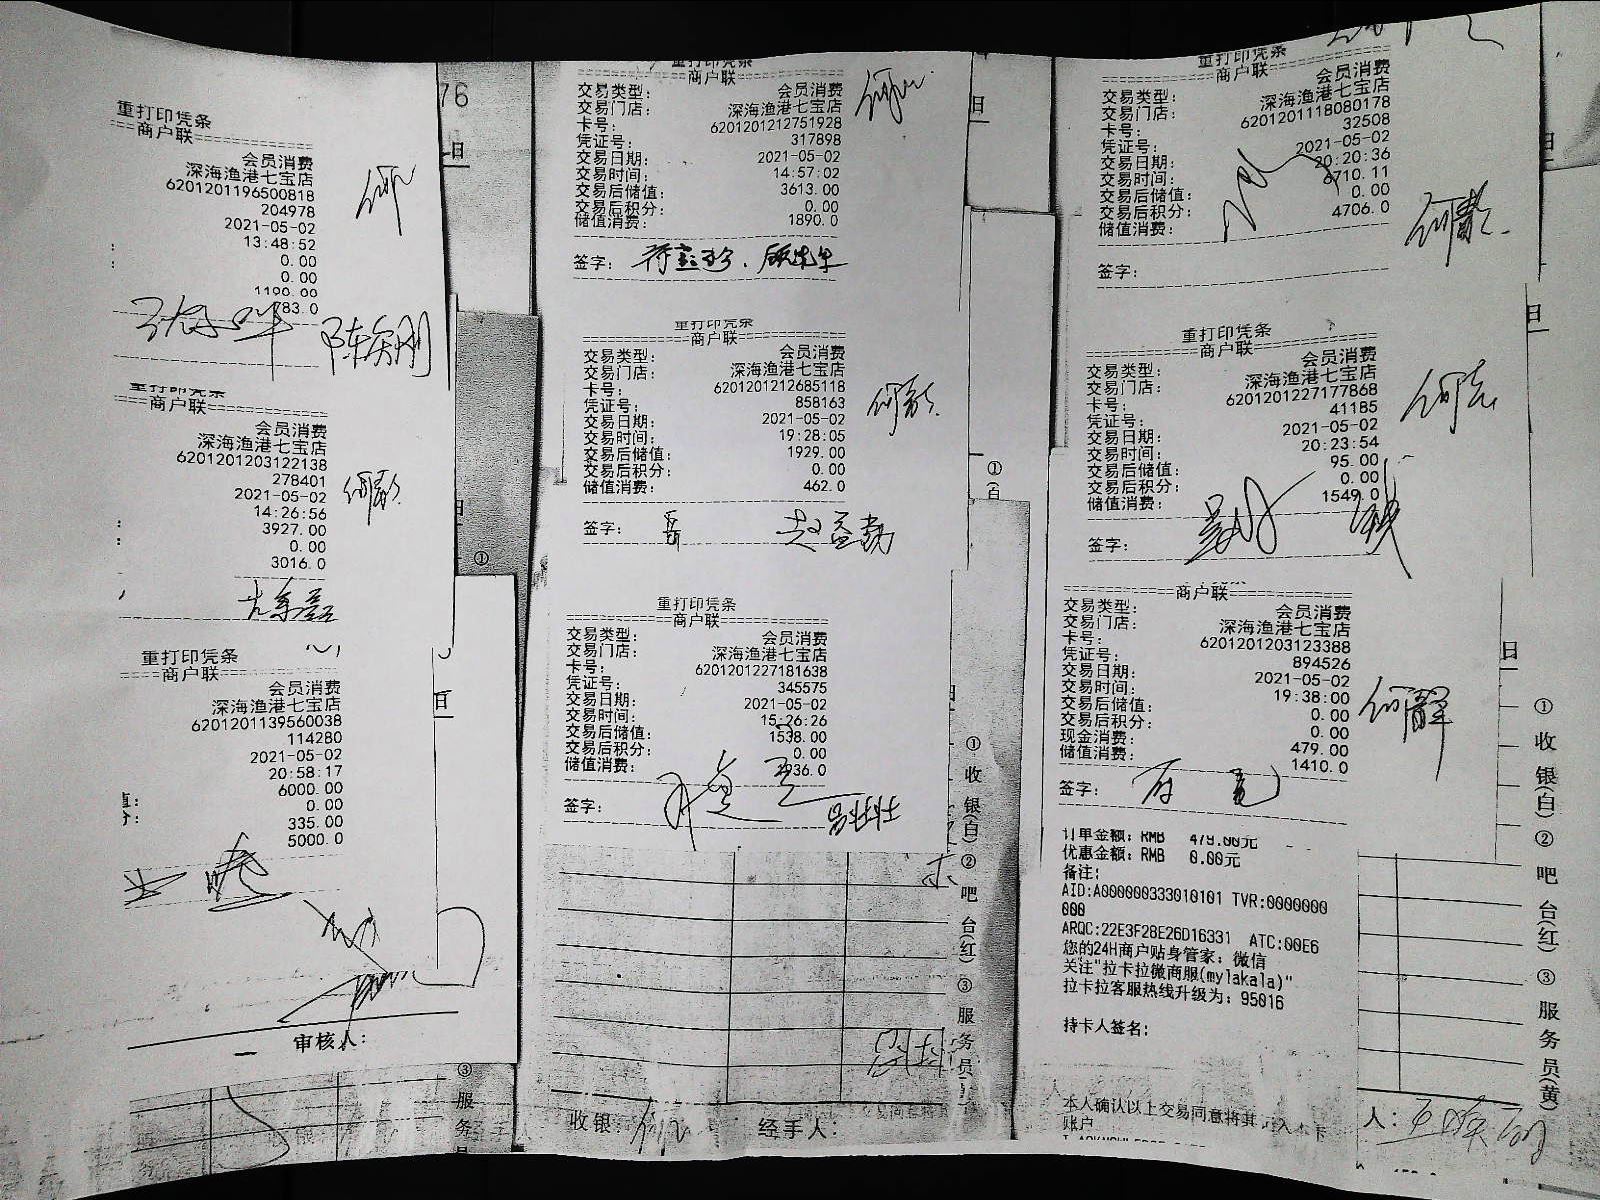 重打印凭条
商户联
会员消费
深海渔港七宝店
6201201196500818
204978
2021-05-02
13:48:52
0.00
0.00
1190.00
783.0
重打印凭条
商户联
会员消费
深海渔港七宝店
6201201203122138
278401
2021-05-02
14:26:56
3927.00
0.00
3016.0
重打印凭条
商户联
会员消费
深海渔港七宝店
6201201139560038
114280
2021-05-02
20:58:17
6000.00
0.00
335.00
5000.0
审核人:
③服务
76
日
①
重打印凭条
商户联
交易类型: 会员消费
交易门店: 深海渔港七宝店
卡号: 6201201212751928
凭证号: 317898
交易日期: 2021-05-02
交易时间: 14:57:02
交易后储值: 3613.00
交易后积分: 0.00
储值消费: 1890.0
签字:
重打印凭条
商户联
交易类型: 会员消费
交易门店: 深海渔港七宝店
卡号: 6201201212685118
凭证号: 858163
交易日期: 2021-05-02
交易时间: 19:28:05
交易后储值: 1929.00
交易后积分: 0.00
储值消费: 462.0
签字: 赵益勤
重打印凭条
商户联
交易类型: 会员消费
交易门店: 深海渔港七宝店
卡号: 6201201227181638
凭证号: 345575
交易日期: 2021-05-02
交易时间: 15:26:26
交易后储值: 1538.00
交易后积分: 0.00
储值消费: 936.0
签字: 吕壮壮
收银:
经手人:
①收银(白)②吧台(红)③服务员(
重打印凭条
商户联
交易类型: 会员消费
交易门店: 深海渔港七宝店
卡号: 6201201118080178
凭证号: 32508
交易日期: 2021-05-02
交易时间: 20:20:36
交易后储值: 6710.11
交易后积分: 0.00
储值消费: 4706.0
签字:
重打印凭条
商户联
交易类型: 会员消费
交易门店: 深海渔港七宝店
卡号: 6201201227177868
凭证号: 41185
交易日期: 2021-05-02
交易时间: 20:23:54
交易后储值: 95.00
交易后积分: 0.00
储值消费: 1549.0
签字:
商户联
交易类型: 会员消费
交易门店: 深海渔港七宝店
卡号: 6201201203123388
凭证号: 894526
交易日期: 2021-05-02
交易时间: 19:38:00
交易后储值: 0.00
交易后积分: 0.00
现金消费: 479.00
储值消费: 1410.0
签字:
订单金额: RMB 479.00元
优惠金额: RMB 0.00元
备注:
AID:A000000333010101 TVR:0000000
000
ARQC:22E3F28E26D16331 ATC:00E6
您的24H商户贴身管家: 微信
关注"拉卡拉微商服(mylakala)"
拉卡拉客服热线升级为: 95016
持卡人签名:
本人确认以上交易同意将其记入本卡
账户
人:
①收银(白)②吧台(红)③服务员(黄)